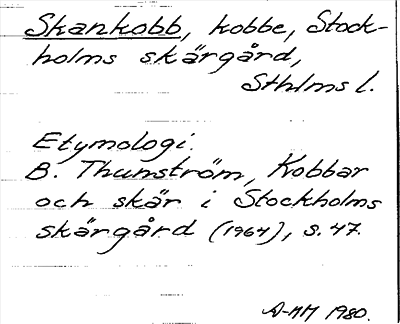 Skankobb, kobbe, Stock-
holms skärgård,
Sthlms l.
Etymologi.
B. Thunström, Kobbar
och skär i Stockholms
skärgård (1964), s. 47.
A-MM 1980.